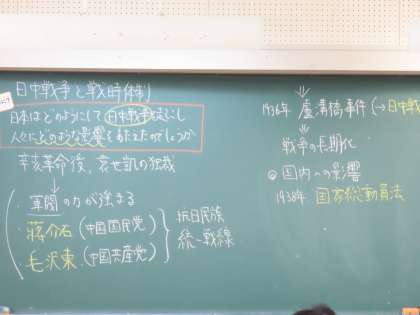 日中戦争と戦時体制
日本はどのようにして日中戦争を起こし
人々にどのような影響を与えたのでしょうか
辛亥革命後、袁世凱の独裁
↓
軍閥の力が強まる
蔣介石(中国国民党)
毛沢東(中国共産党)
抗日民族
統一戦線
⇓
1936年 盧溝橋事件(→日中戦
⇓
戦争の長期化
◎国内への影響
1938年 国家総動員法